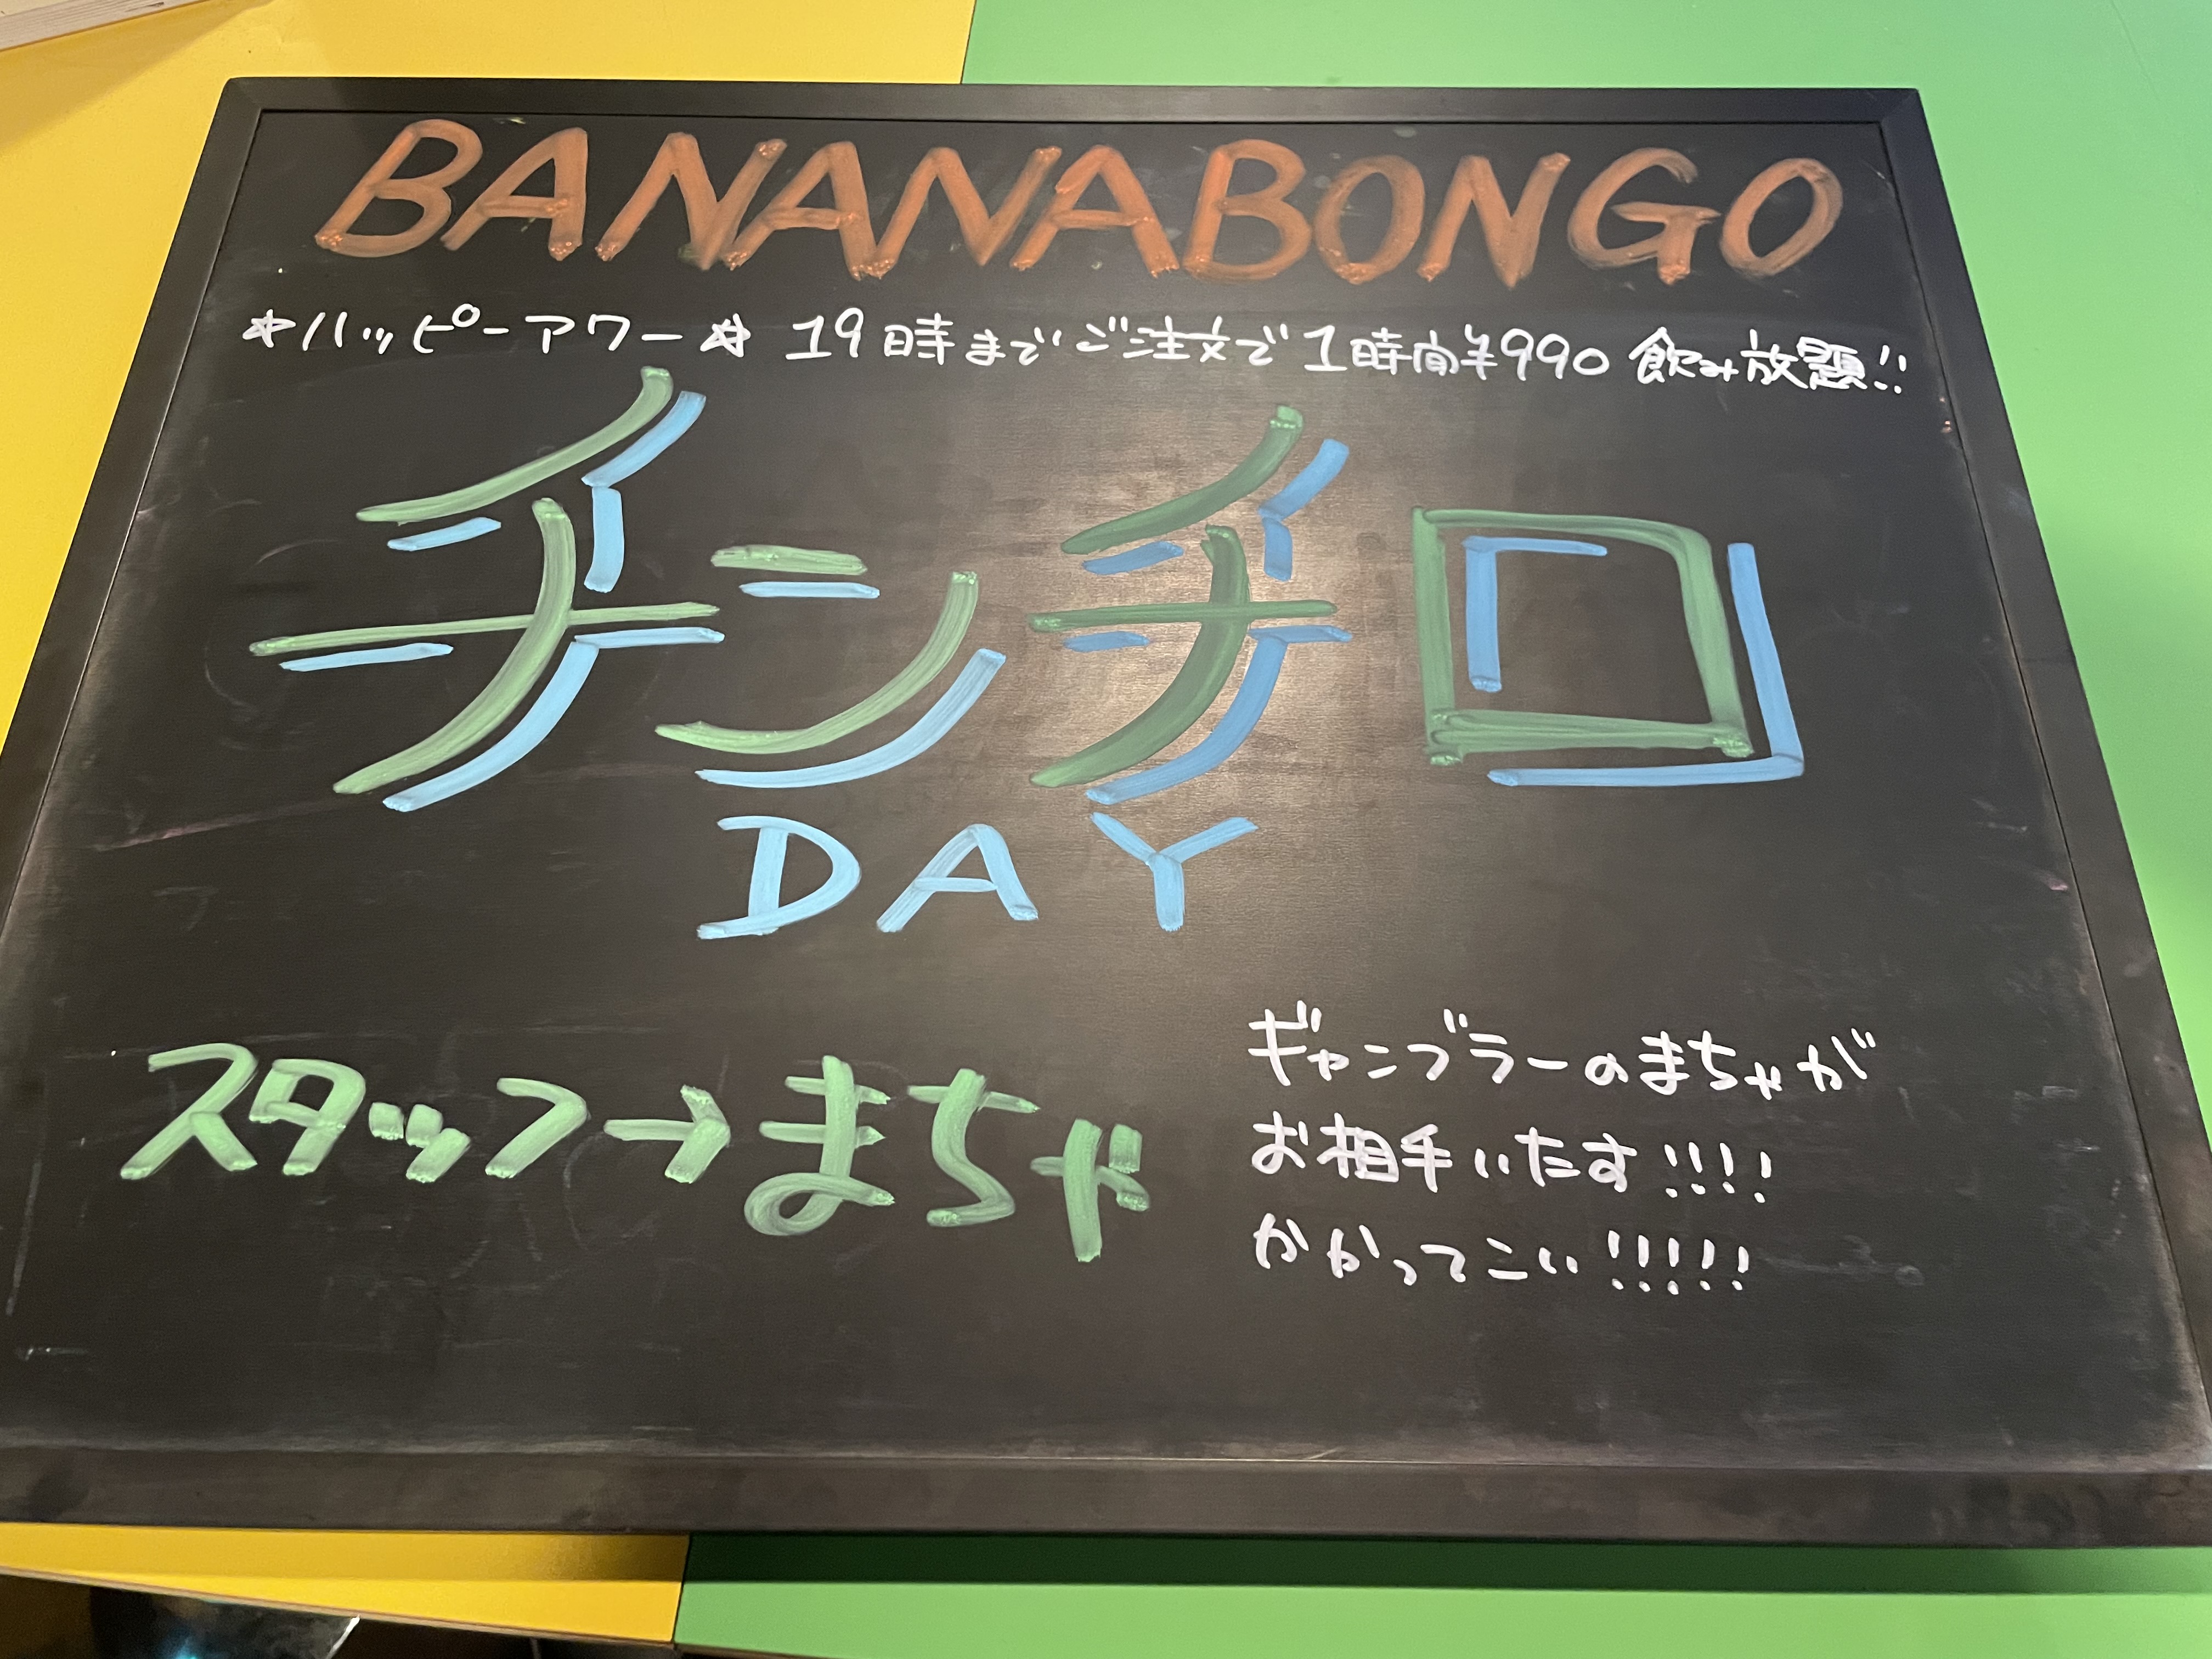 BANANABONGO
☆ハッピーアワー☆ 19時までご注文で1時間¥990 飲み放題!!
チンチロ
DAY
スタッフ→まちゃ
ギャンブラーのまちゃが
お相手いたす!!!!
かかってこい!!!!!